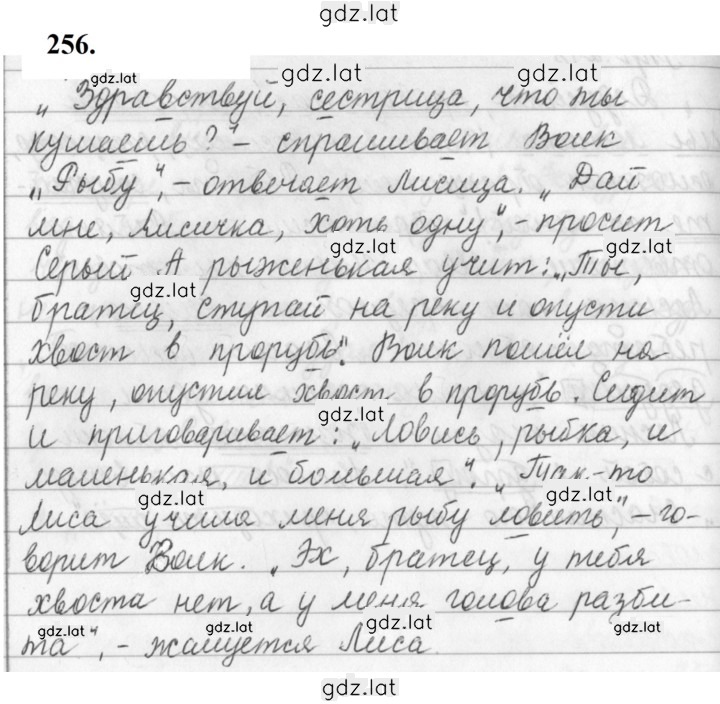 gdz.lat
256.
gdz.lat gdz.lat gdz.lat
„Здравствуй, сестрица, что ты
кушаешь?“ – спрашивает Волк
„Рыбу“, – отвечает Лисица. „Дай
мне, Лисичка, хоть одну“ – просит
gdz.lat gdz.lat
Серый А рыженькая учит: „Ты,
gdz.lat
братец, ступай на реку и опусти
хвост в прорубь“. Волк пошёл на
реку, опустил хвост в прорубь. Сидит
gdz.lat
и приговаривает: „Ловись, рыбка, и
маленькая, и большая“. „Так-то
gdz.lat gdz.lat
Лиса учила меня рыбу ловить“, – го-
ворит Волк. „Эх, братец, у тебя
хвоста нет, а у меня голова разби-
gdz.lat gdz.lat gdz.lat gdz.lat
та“, – жалуется Лиса.
gdz.lat